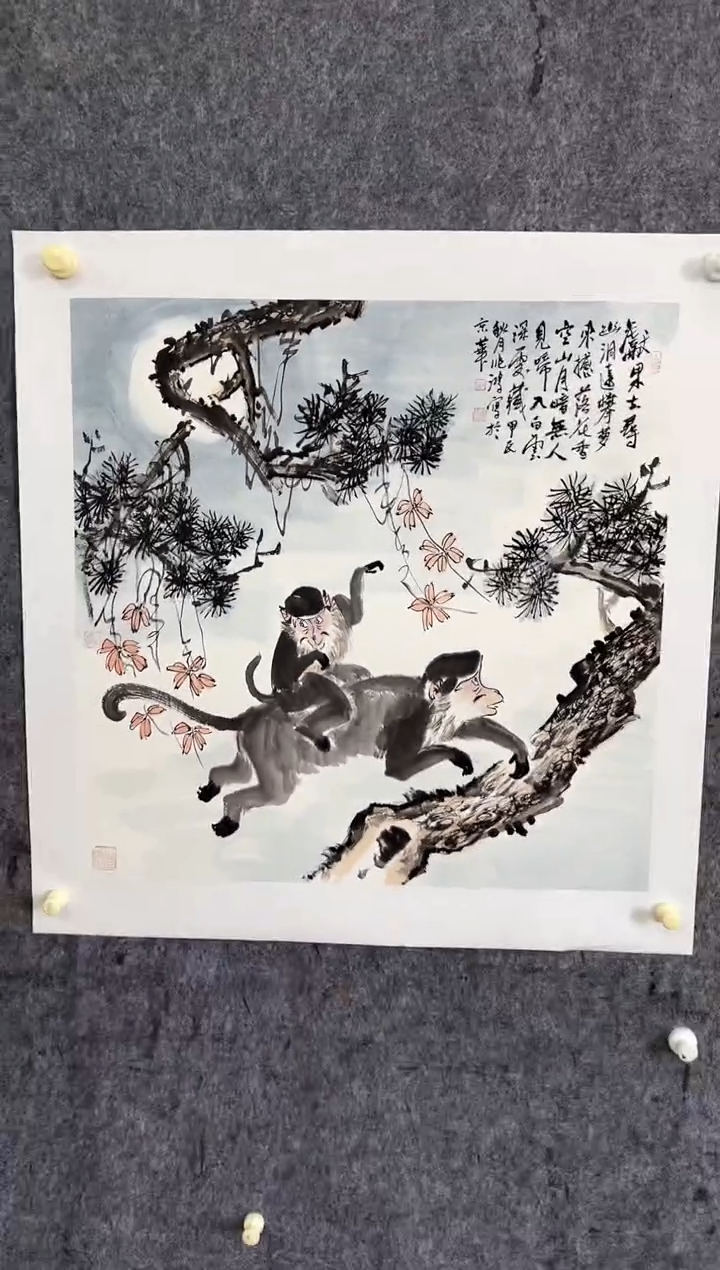 獻果去尋
幽洞遠攀萝
來撼落花香
空山月暗無人
見啼入白雲
深處藏甲辰
秋月兆鴻寫於
京華